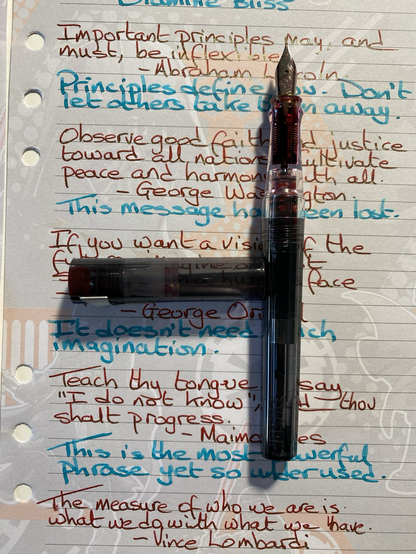 Diamine Bliss
Important principles may, and
must, be inflexible.
- Abraham Lincoln
Principles define you. Don't
let others take them away.
Observe good faith and justice
toward all nations. Cultivate
peace and harmony with all.
- George Washington
This message has been lost.
If you want a vision of the
face
- George Orwell
It doesn't need much
imagination.
Teach thy tongue to say
"I do not know", and thou
shalt progress.
- Maimonides
This is the most powerful
phrase yet so under used.
The measure of who we are is
what we do with what we have.
- Vince Lombardi